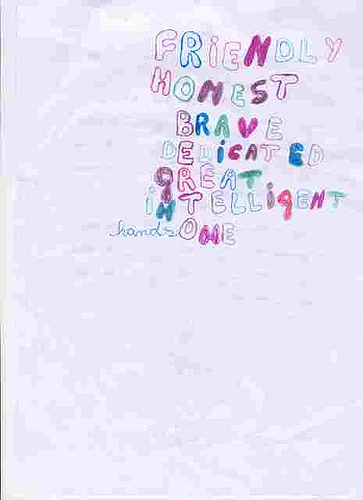 FRiENDLY
HONEST
BRAVE
DEDiCATED
GREAT
iNTELLigENT
handsOME